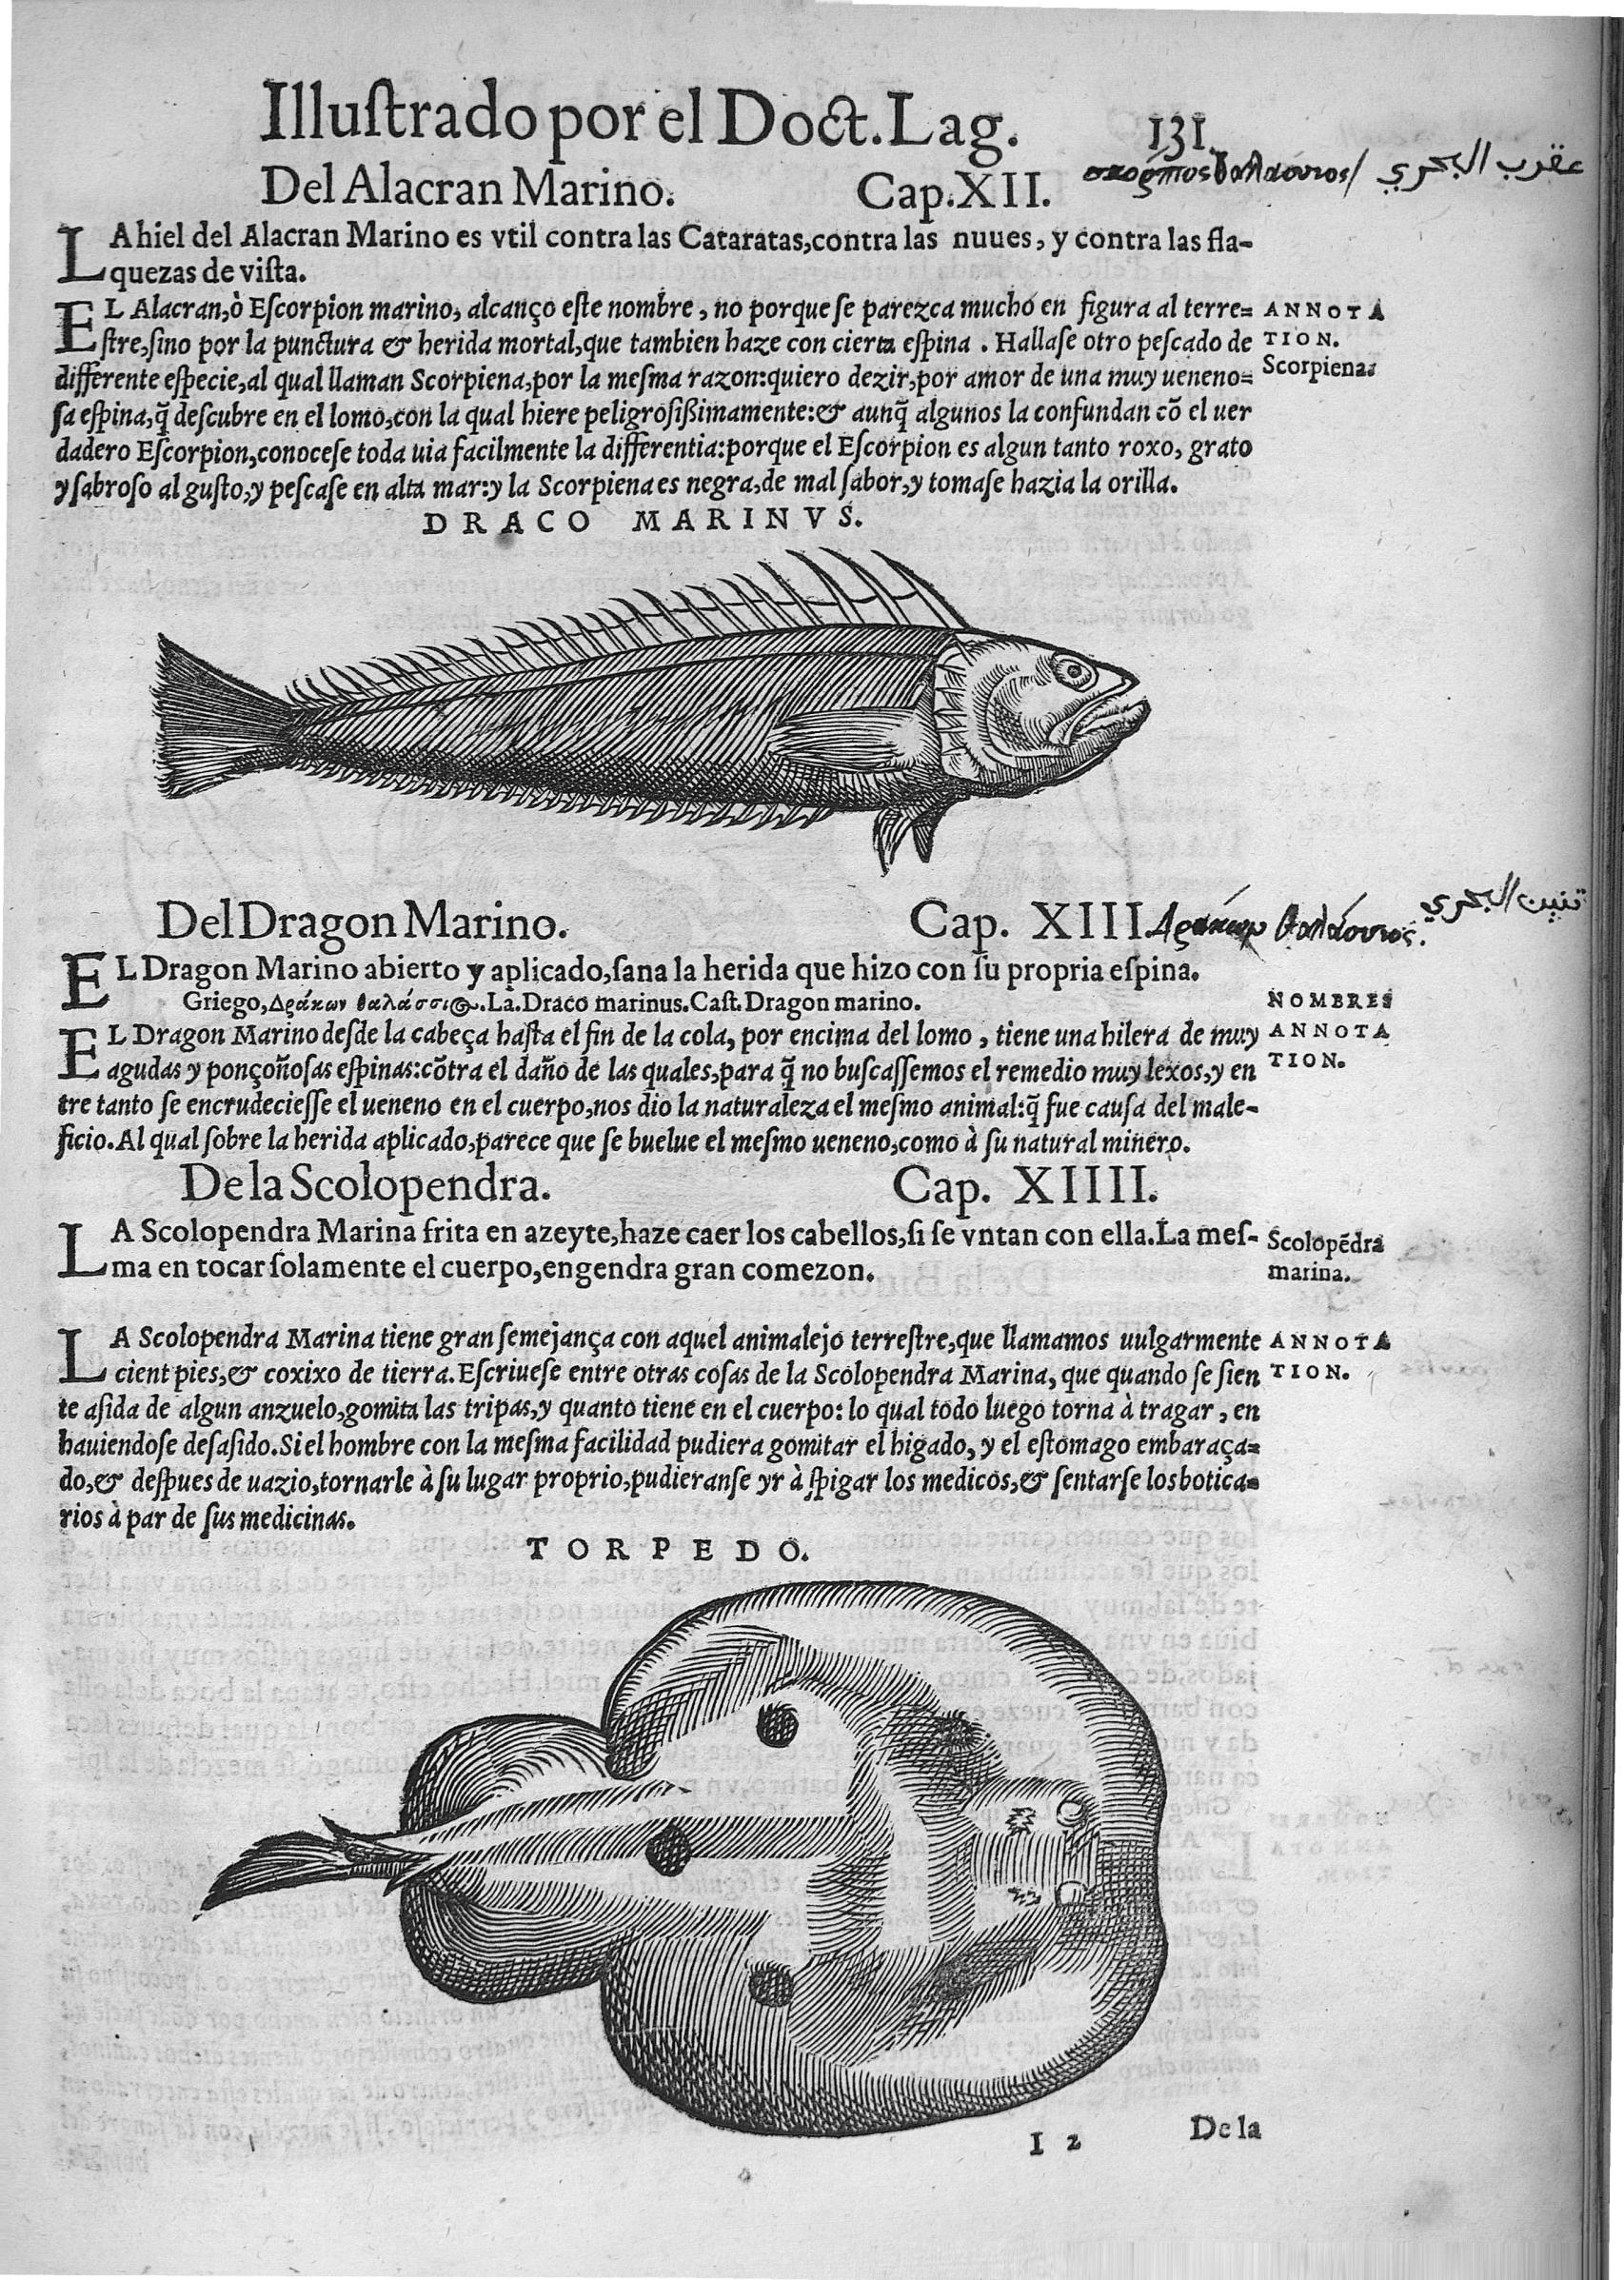 Illuſtrado por el Doct. Lag. 131.
Del Alacran Marino. Cap. XII. σκορπιος θαλάσσιος / عقرب البحري
LA hiel del Alacran Marino es vtil contra las Cataratas, contra las nuues, y contra las fla-
quezas de viſta.
EL Alacran, ò Eſcorpion marino, alcanço eſte nombre, no porque ſe parezca mucho en figura al terre= ANNOTA
ſtre, ſino por la punctura & herida mortal, que tambien haze con cierta eſpina. Hallaſe otro peſcado de TION.
differente eſpecie, al qual llaman Scorpiena, por la meſma razon: quiero dezir, por amor de una muy ueneno= Scorpiena.
ſa eſpina, q̃ deſcubre en el lomo, con la qual hiere peligroſißimamente: & aunq̃ algunos la confundan cõ el uer
dadero Eſcorpion, conoceſe toda uia facilmente la differentia: porque el Eſcorpion es algun tanto roxo, grato
y ſabroſo al guſto, y peſcaſe en alta mar: y la Scorpiena es negra, de mal ſabor, y tomaſe hazia la orilla.
DRACO MARINVS.
Del Dragon Marino. Cap. XIII. Δράκων θαλάσσιος. تنين البحري
EL Dragon Marino abierto y aplicado, ſana la herida que hizo con ſu propria eſpina.
Griego, Δράκων θαλάσσιος. La. Draco marinus. Caſt. Dragon marino. NOMBRES
EL Dragon Marino deſde la cabeça haſta el fin de la cola, por encima del lomo, tiene una hilera de muy ANNOTA
agudas y ponçoñoſas eſpinas: cõtra el daño de las quales, para q̃ no buſcaſſemos el remedio muy lexos, y en TION.
tre tanto ſe encrudecieſſe el ueneno en el cuerpo, nos dio la naturaleza el meſmo animal: q̃ fue cauſa del male-
ficio. Al qual ſobre la herida aplicado, parece que ſe buelue el meſmo ueneno, como à ſu natural minero.
De la Scolopendra. Cap. XIIII.
LA Scolopendra Marina frita en azeyte, haze caer los cabellos, ſi ſe vntan con ella. La meſ- Scolopẽdra
ma en tocar ſolamente el cuerpo, engendra gran comezon. marina.
LA Scolopendra Marina tiene gran ſemejança con aquel animalejo terreſtre, que llamamos uulgarmente ANNOTA
cient pies, & coxixo de tierra. Eſcriueſe entre otras coſas de la Scolopendra Marina, que quando ſe ſien TION.
te aſida de algun anzuelo, gomita las tripas, y quanto tiene en el cuerpo: lo qual todo luego torna à tragar, en
hauiendoſe deſaſido. Si el hombre con la meſma facilidad pudiera gomitar el higado, y el eſtomago embaraça=
do, & deſpues de uazio, tornarle à ſu lugar proprio, pudieranſe yr à ſpigar los medicos, & ſentarſe los botica=
rios à par de ſus medicinas.
TORPEDO.
I 2 De la